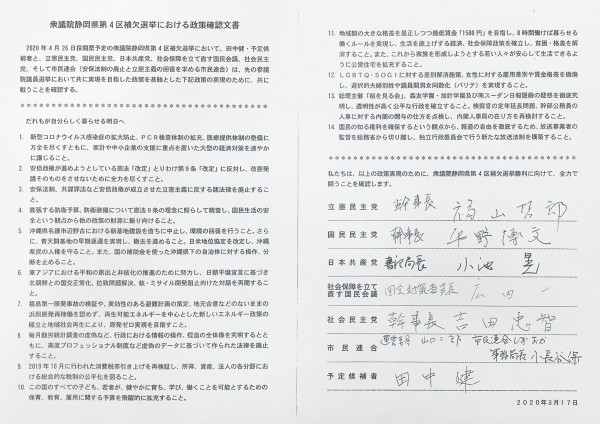 衆議院静岡県第4区補欠選挙における政策確認文書
2020年4月26日投開票予定の衆議院静岡県第4区補欠選挙において、田中健・予定候
補者と、立憲民主党、国民民主党、日本共産党、社会保障を立て直す国民会議、社会民主
党、そして市民連合（安保法制の廃止と立憲主義の回復を求める市民連合）は、先の参議
院議員選挙において共に実現を目指した政策を基軸とした下記政策の実現のために、共に
戦うことを確認する。
だれもが自分らしく暮らせる明日へ
1. 新型コロナウイルス感染症の拡大防止、PCR検査体制の拡充、医療提供体制の整備に
万全を尽くすとともに、家計や中小企業の支援に重点を置いた大型の経済対策を速やか
に講じること。
2. 安倍政権が進めようとしている憲法「改定」とりわけ第9条「改定」に反対し、改憲発
議そのものをさせないために全力を尽くすこと。
3. 安保法制、共謀罪法など安倍政権が成立させた立憲主義に反する諸法律を廃止するこ
と。
4. 膨張する防衛予算、防衛装備について憲法9条の理念に照らして精査し、国民生活の安
全という観点から他の政策の財源に振り向けること。
5. 沖縄県名護市辺野古における新基地建設を直ちに中止し、環境の回復を行うこと。さら
に、普天間基地の早期返還を実現し、撤去を進めること。日米地位協定を改定し、沖縄
県民の人権を守ること。また、国の補助金を使った沖縄県下の自治体に対する操作、分
断を止めること。
6. 東アジアにおける平和の創出と非核化の推進のために努力し、日朝平壌宣言に基づき
北朝鮮との国交正常化、拉致問題解決、核・ミサイル開発阻止に向けた対話を再開するこ
と。
7. 福島第一原発事故の検証や、実効性のある避難計画の策定、地元合意などのないままの
浜岡原発再稼働を認めず、再生可能エネルギーを中心とした新しいエネルギー政策の
確立と地域社会再生により、原発ゼロ実現を目指すこと。
8. 毎月勤労統計調査の虚偽など、行政における情報の操作、捏造の全体像を究明するとと
もに、高度プロフェッショナル制度など虚偽のデータに基づいて作られた法律を廃止
すること。
9. 2019年10月に行われた消費税率引き上げを再検証し、所得、資産、法人の各分野にお
ける総合的な税制の公平化を図ること。
10. この国のすべての子ども、若者が、健やかに育ち、学び、働くことを可能とするための
保育、教育、雇用に関する予算を飛躍的に拡充すること。
11. 地域間の大きな格差を是正しつつ最低賃金「1500円」を目指し、8時間働けば暮らせる
働くルールを実現し、生活を底上げする経済、社会保障政策を確立し、貧困・格差を解
消すること。また、これから家族を形成しようとする若い人々が安心して生活できるよ
うに公営住宅を拡充すること。
12. LGBTQ・SOGIに対する差別解消施策、女性に対する雇用差別や賃金格差を撤廃
し、選択的夫婦別姓や議員間男女同数化（パリテ）を実現すること。
13. 総理主催「桜を見る会」、森友学園・加計学園及び南スーダン日報隠蔽の疑惑を徹底究
明し、透明性が高く公平な行政を確立すること。検察官の定年延長問題、幹部公務員の
人事に対する内閣の関与の仕方を点検し、内閣人事局の在り方を再検討すること。
14. 国民の知る権利を確保するという観点から、報道の自由を徹底するため、放送事業者の
監督を総務省から切り離し、独立行政委員会で行う新たな放送法制を構築すること。
私たちは、以上の政策実現のために、衆議院静岡県第4区補欠選挙勝利に向けて、全力で
闘うことを確認します。
立憲民主党 幹事長 福山哲郎
国民民主党 幹事長 平野博文
日本共産党 書記局長 小池晃
社会保障を立て
直す国民会議 国会対策委員長 広田一
社会民主党 幹事長 吉田忠智
市民連合 運営委員 山口二郎 市民連合しずおか
事務局長 小長谷保
予定候補者 田中健
2020年3月17日